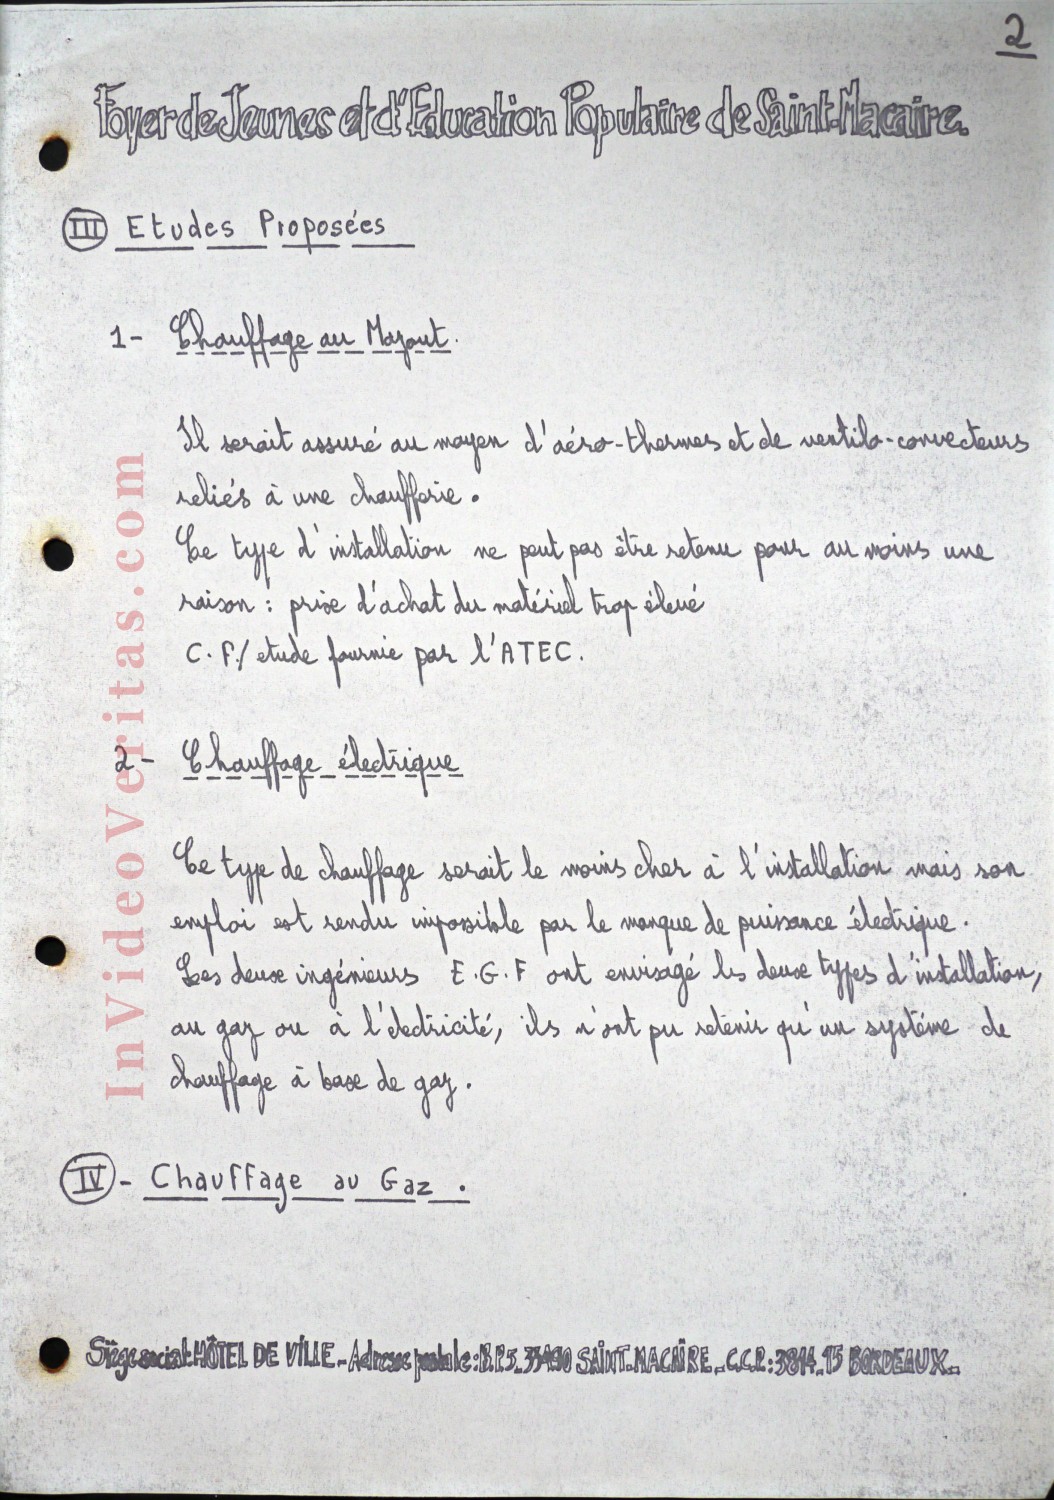 2
Foyer de Jeunes et d'Education Populaire de Saint-Macaire.
III Etudes Proposées
1- Chauffage au Mazout.
Il serait assuré au moyen d'aéro-thermes et de ventilo-convecteurs
reliés à une chaufferie.
Ce type d'installation ne peut pas être retenu pour au moins une
raison : prise d'achat du matériel trop élevé
C.F./ etude fournie par l'ATEC.
2- Chauffage électrique
Ce type de chauffage serait le moins cher à l'installation mais son
emploi est rendu impossible par le manque de puissance électrique.
Les deux ingénieurs E.G.F ont envisagé les deux types d'installation,
au gaz ou à l'électricité, ils n'ont pu retenir qu'un système de
chauffage à base de gaz.
IV - Chauffage au Gaz.
Siège social: HÔTEL DE VILLE - Adresse postale: B.P.5_33490 SAINT-MACAIRE_C.C.P.: 3814_95 BORDEAUX_
InVideoVeritas.com